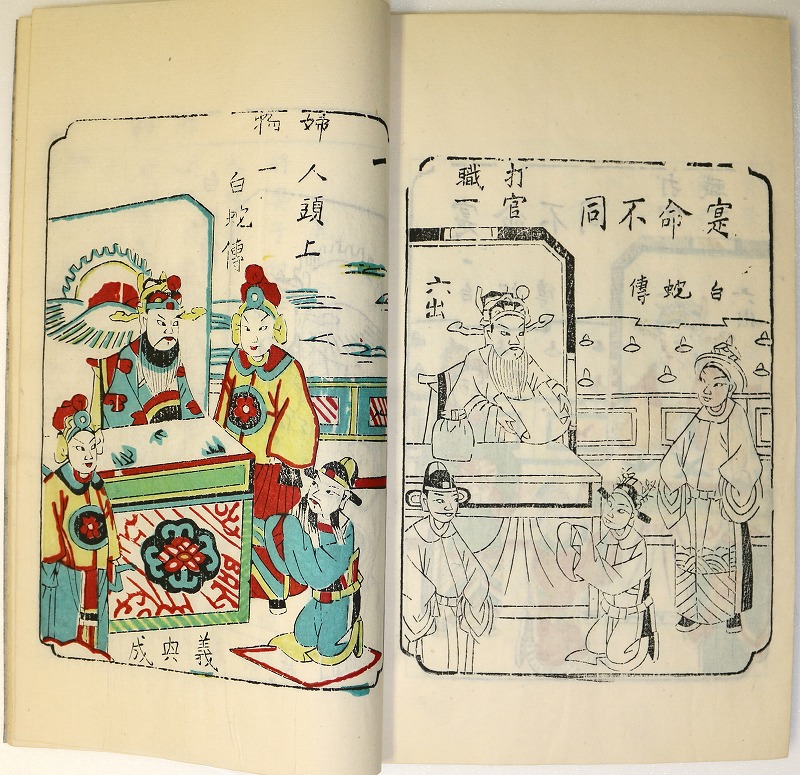 寔命不同
打官
職一
白蛇傳
六出
婦人頭上
物一
白蛇傳
義興成